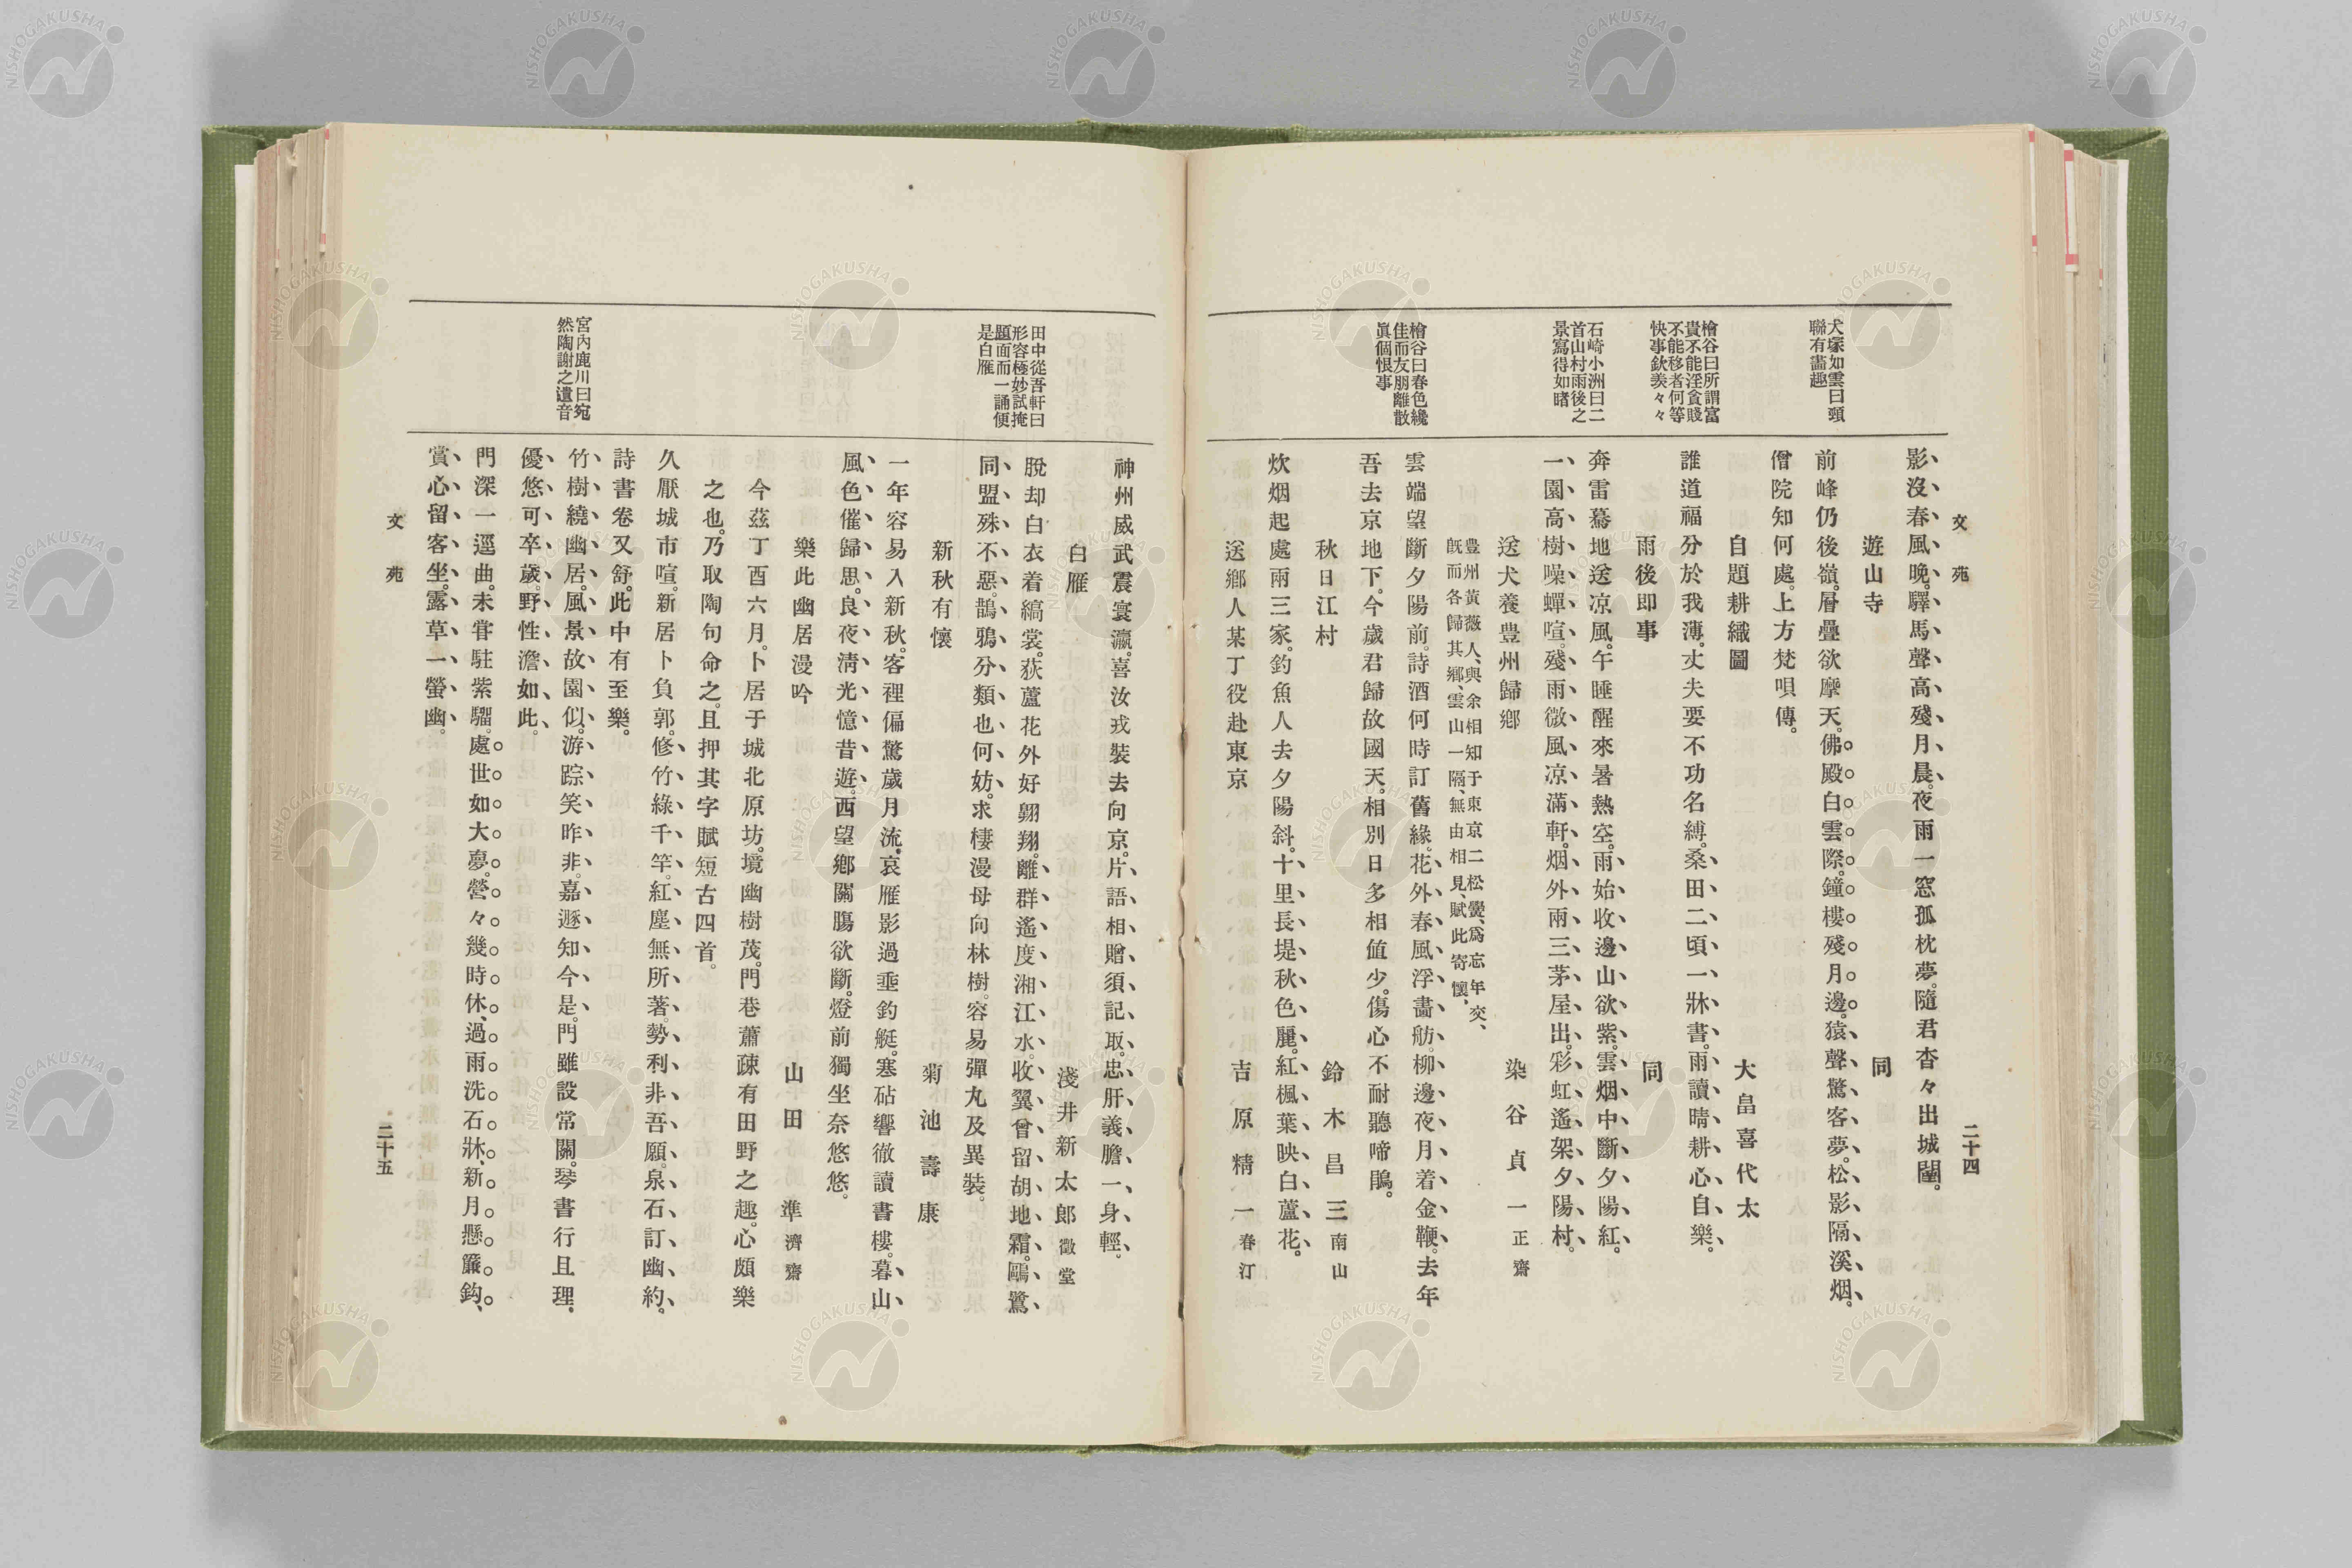 文苑
二十四
犬塚如雲曰頸
聯有畵趣
檜谷曰所謂富
貴不能淫貧賤
不能移者何等
快事欽羨々々
石崎小洲曰二
首山村雨後之
景寫得如睹
檜谷曰春色纔
佳而友朋離散
眞個恨事
影、沒、春、風、晩。驛、馬、聲、高、殘、月、晨。夜雨一窓孤枕夢。隨君杳々出城闉。
遊山寺 同
前峰仍後嶺。層疊欲摩天。佛殿白雲際。鐘樓殘月邊。猿聲驚客夢。松影隔溪烟。
僧院知何處。上方梵唄傳。
自題耕織圖 大畠喜代太
誰道福分於我薄。丈夫要不功名縛。桑田二頃一牀書。雨讀晴耕心自樂。
雨後即事 同
奔雷驀地送凉風。午睡醒來暑熱空。雨始收邊山欲紫。雲烟中斷夕陽紅。
一園高樹噪蟬喧。殘雨微風凉滿軒。烟外兩三茅屋出。彩虹遙架夕陽村。
送犬養豊州歸鄉 染谷貞一正齋
豊州黃薇人、與余相知于東京二松黌、爲忘年交、
既而各歸其鄉、雲山一隔、無由相見、賦此寄懷、
雲端望斷夕陽前。詩酒何時訂舊緣。花外春風浮畵舫。柳邊夜月着金鞭。去年
吾去京地下。今歲君歸故國天。相別日多相値少。傷心不耐聽啼鵑。
秋日江村 鈴木昌三南山
炊烟起處兩三家。釣魚人去夕陽斜。十里長堤秋色麗。紅楓葉映白蘆花。
送鄉人某丁役赴東京 吉原精一春汀
田中從吾軒曰
形容極妙試掩
題面而一誦便
是白雁
宮內鹿川曰宛
然陶謝之遺音
神州威武震寰瀛。喜汝戎裝去向京。片語相贈須記取。忠肝義膽一身輕。
白雁 淺井新太郎徵堂
脫却白衣着縞裳。荻蘆花外好翶翔。離群遙度湘江水。收翼曾留胡地霜。鷗鷺
同盟殊不惡。鵲鴉分類也何妨。求棲漫母向林樹。容易彈丸及異裝。
新秋有懷 菊池壽康
一年容易入新秋。客裡偏驚歲月流。哀雁影過垂釣艇。塞砧響徹讀書樓。暮山
風色催歸思。良夜淸光憶昔遊。西望鄉關膓欲斷。燈前獨坐奈悠悠。
樂此幽居漫吟 山田準濟齋
今茲丁酉六月。卜居于城北原坊。境幽樹茂。門巷蕭疎有田野之趣。心頗樂
之也。乃取陶句命之。且押其字賦短古四首。
久厭城市喧。新居卜負郭。修竹綠千竿。紅塵無所著。勢利非吾願。泉石訂幽約。
詩書卷又舒。此中有至樂。
竹樹繞幽居。風景故園似。游踪笑昨非。嘉遯知今是。門雖設常關。琴書行且理。
優悠可卒歲。野性澹如此。
門深一逕曲。未甞駐紫騮。處世如大夢。營々幾時休。過雨洗石牀。新月懸簾鈎。
賞心留客坐。露草一螢幽。
文苑
二十五